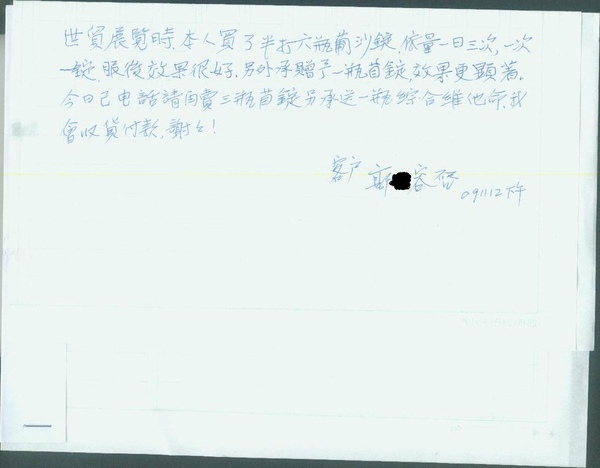 世貿展覽時,本人買了半打六瓶葡沙錠,依量一日三次,一次
一錠,服後效果很好,另外承贈予一瓶苜錠,效果更顯著,
今日已电話請再賣三瓶苜錠另承送一瓶綜合維他命,我
會收貨付款,謝々!
客户 容啓
091112下午